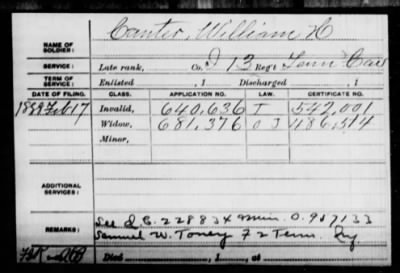 Canter, William H
NAME OF SOLDIER:
SERVICE: Late rank, Co. I 13 Reg't Tenn Cav
TERM OF SERVICE: Enlisted , 1 Discharged , 1
DATE OF FILING. CLASS. APPLICATION NO. LAW. CERTIFICATE NO.
1889 Feb 17 Invalid, 640,636 I 542,001
Widow, 681,376 486,514
Minor,
ADDITIONAL SERVICES:
REMARKS: See C. 228834 Min. O. 917133
Samuel W. Toney F 2 Tenn.
Died , 1 , at